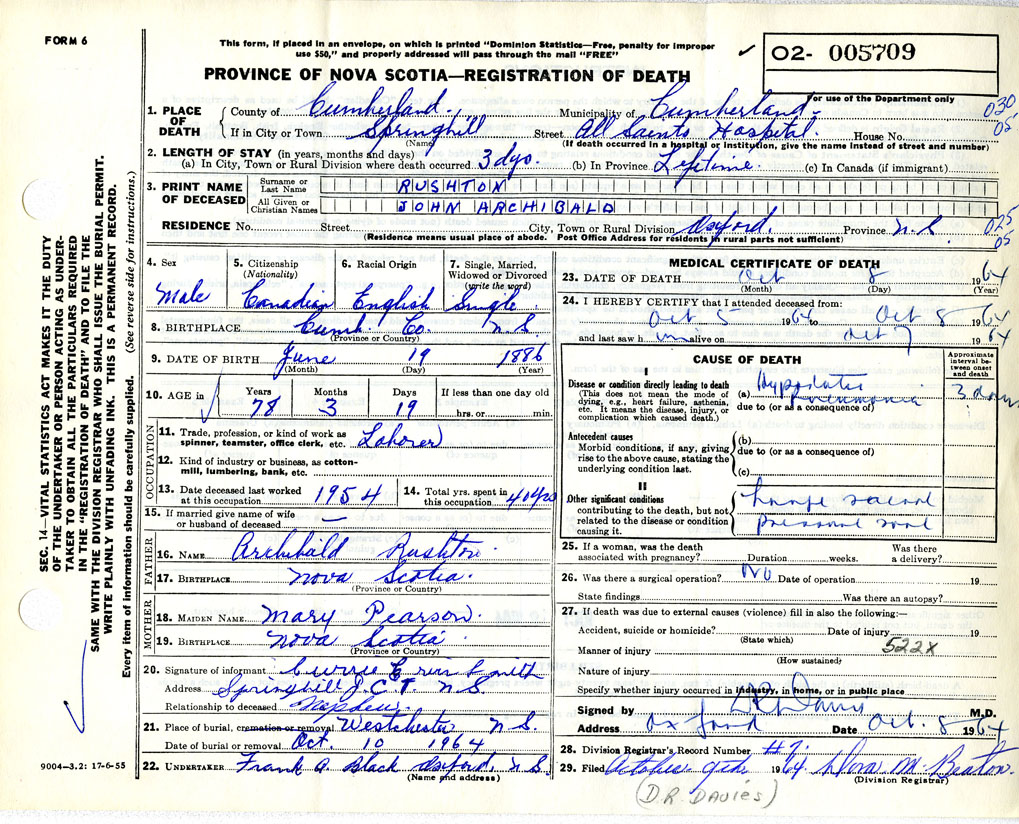 FORM 6
This form, if placed in an envelope, on which is printed "Dominion Statistics—Free, penalty for improper
use $50," and properly addressed will pass through the mail "FREE"
✓
02- 005709
For use of the Department only
PROVINCE OF NOVA SCOTIA—REGISTRATION OF DEATH
1. PLACE OF DEATH County of Cumberland. Municipality of Cumberland 030
If in City or Town Springhill (Name) Street All Saints Hospital. House No. 05
(If death occurred in a hospital or institution, give the name instead of street and number)
2. LENGTH OF STAY (in years, months and days)
(a) In City, Town or Rural Division where death occurred 3 dys. (b) In Province Lifetime. (c) In Canada (if immigrant)
3. PRINT NAME OF DECEASED Surname or Last Name RUSHTON
All Given or Christian Names JOHN ARCHIBALD
RESIDENCE No. Street City, Town or Rural Division Oxford. Province N.S. 025
05
(Residence means usual place of abode. Post Office Address for residents in rural parts not sufficient)
4. Sex Male
5. Citizenship (Nationality) Canadian
6. Racial Origin English
7. Single, Married, Widowed or Divorced (write the word) Single
8. BIRTHPLACE Cumb. Co. N.S.
(Province or Country)
9. DATE OF BIRTH June 19 1886
(Month) (Day) (Year)
10. AGE in Years 78 Months 3 Days 19 If less than one day old hrs. or min.
OCCUPATION
11. Trade, profession, or kind of work as spinner, teamster, office clerk, etc. Laborer
12. Kind of industry or business, as cotton-mill, lumbering, bank, etc.
13. Date deceased last worked at this occupation 1954 14. Total yrs. spent in this occupation 40 yrs
15. If married give name of wife or husband of deceased —
FATHER
16. NAME Archibald Rushton
17. BIRTHPLACE Nova Scotia.
(Province or Country)
MOTHER
18. MAIDEN NAME Mary Pearson.
19. BIRTHPLACE Nova Scotia
(Province or Country)
20. Signature of informant Smith
Address Springhill JCT. N.S.
Relationship to deceased Nephew
21. Place of burial, cremation or removal Westchester N.S.
Date of burial or removal Oct. 10 1964
22. UNDERTAKER Frank A. Black Oxford, N.S.
(Name and address)
MEDICAL CERTIFICATE OF DEATH
23. DATE OF DEATH Oct 8 1964
(Month) (Day) (Year)
24. I HEREBY CERTIFY that I attended deceased from:
Oct 5 1964 to Oct 8 1964
and last saw h im alive on Oct 7 1964
CAUSE OF DEATH
Approximate interval between onset and death
I
Disease or condition directly leading to death
(This does not mean the mode of dying, e.g., heart failure, asthenia, etc. It means the disease, injury, or complication which caused death.)
(a) Hypostatic Pneumonia 3 days
due to (or as a consequence of)
Antecedent causes
Morbid conditions, if any, giving rise to the above cause, stating the underlying condition last.
(b)
due to (or as a consequence of)
(c)
II
Other significant conditions
contributing to the death, but not related to the disease or condition causing it.
sacral
pressure
25. If a woman, was the death associated with pregnancy? Duration weeks. Was there a delivery?
26. Was there a surgical operation? No Date of operation 19
State findings Was there an autopsy?
27. If death was due to external causes (violence) fill in also the following:—
Accident, suicide or homicide? Date of injury 19
(State which)
Manner of injury 522X
(How sustained)
Nature of injury
Specify whether injury occurred in industry, in home, or in public place
Signed by D R Davies M.D.
Address Oxford Date Oct. 8 1964
28. Division Registrar's Record Number #7.
29. Filed October 9th 1964 Dora M. Beaton.
(Division Registrar)
(D.R. DAVIES)
SEC. 14—VITAL STATISTICS ACT MAKES IT THE DUTY
OF THE UNDERTAKER OR PERSON ACTING AS UNDER-
TAKER TO OBTAIN ALL THE PARTICULARS REQUIRED
IN THE "REGISTRATION OF DEATH" AND TO FILE THE
SAME WITH THE DIVISION REGISTRAR WHO SHALL ISSUE THE BURIAL PERMIT.
WRITE PLAINLY WITH UNFADING INK. THIS IS A PERMANENT RECORD.
Every item of information should be carefully supplied. (See reverse side for instructions.)
9004-3.2: 17-6-55